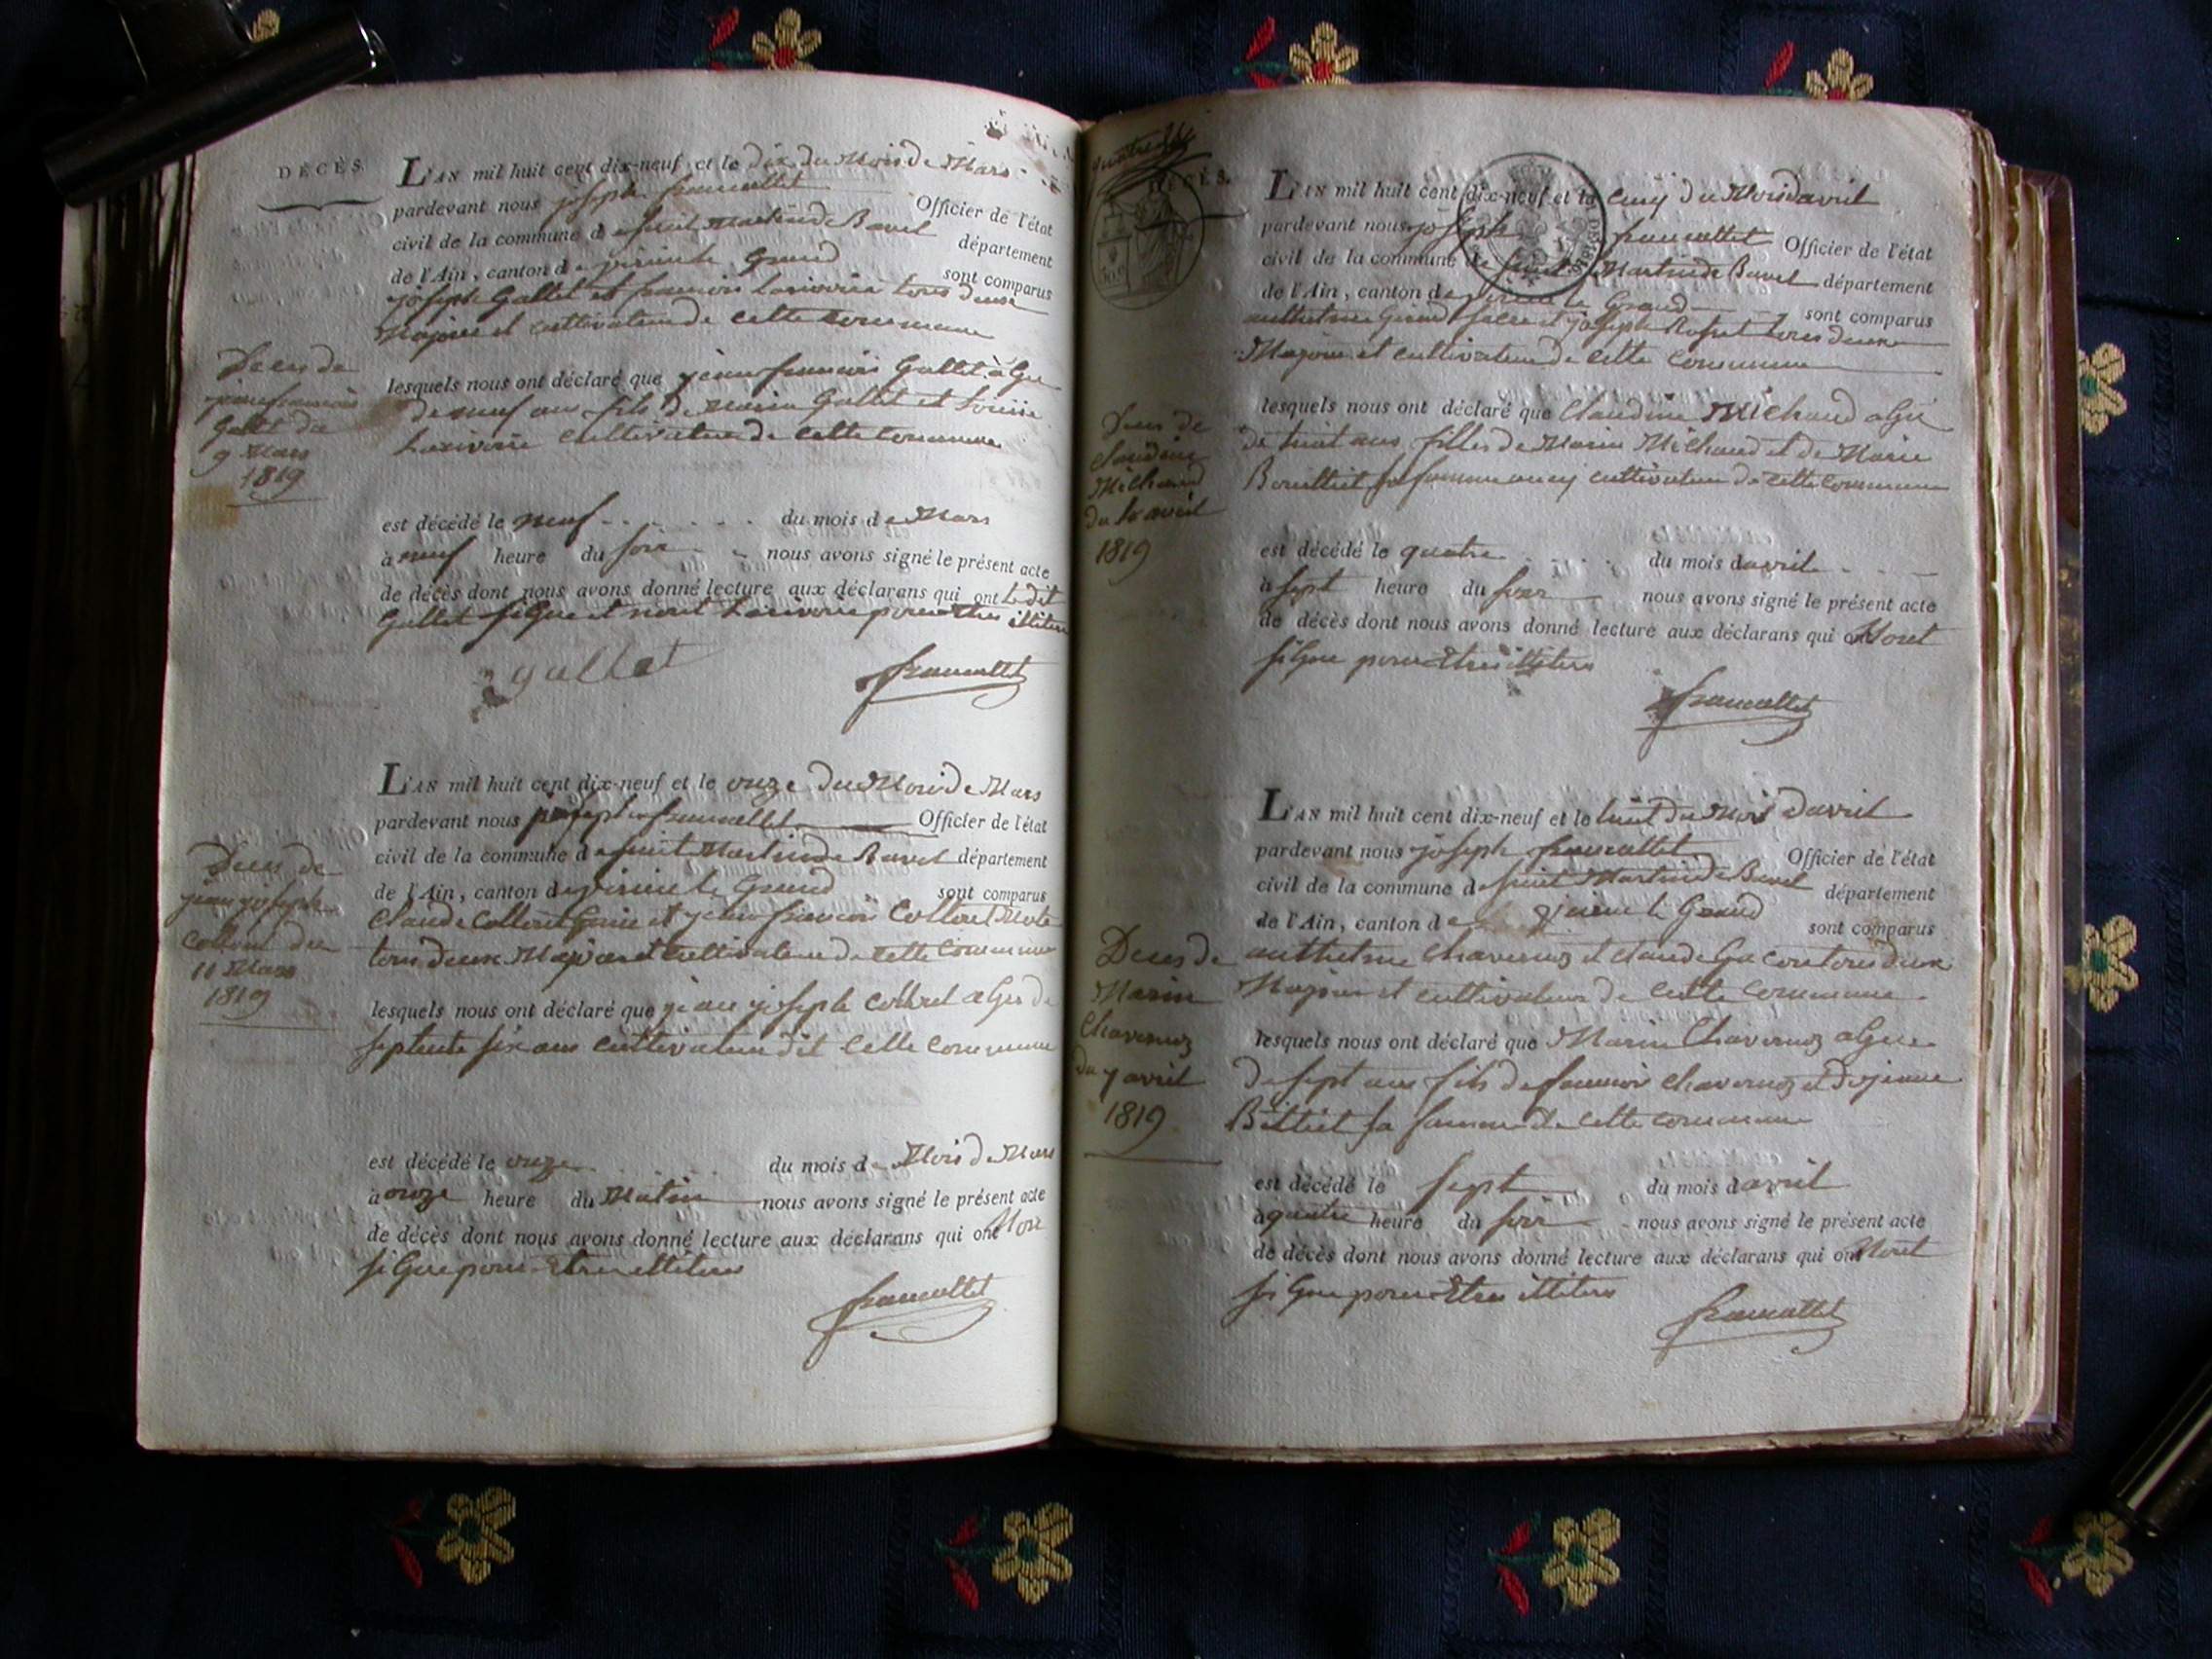 DÉCÈS.
L'AN mil huit cent dix-neuf et le dix du Mois de Mars
pardevant nous joseph francallet Officier de l'état
civil de la commune de Saint Martin de Bavel département
de l'Ain, canton de virieu le Grand sont comparus
joseph Gallet et francois tous deux
Majeurs et cultivateur de cette commune
lesquels nous ont déclaré que jean francois Gallet âGé
de neuf ans fils de Marin Gallet et
cultivateur de cette commune
est décédé le neuf du mois de Mars
à neuf heure du soir nous avons signé le présent acte
de décès dont nous avons donné lecture aux déclarans qui ont Ledit
Gallet siGné et nont pour etres illitere
gallet
francallet
Deces de
jean francois
Gallet du
9 Mars
1819
L'AN mil huit cent dix-neuf et le onze du Mois de Mars
pardevant nous joseph francallet Officier de l'état
civil de la commune de Saint Martin de Bavel département
de l'Ain, canton de virieu le Grand sont comparus
Claude Collovet et jean francois Collovet
tous deux Majeurs et cultivateur de cette commune
lesquels nous ont déclaré que jean joseph Collovet aGés de
septente six ans cultivateur dit cette commune
est décédé le onze du mois de Mois de Mars
à onze heure du Matin nous avons signé le présent acte
de décès dont nous avons donné lecture aux déclarans qui ont
siGné pour Etres illitere
francallet
Deces de
jean joseph
du
11 Mars
1819
DÉCÈS.
L'AN mil huit cent dix-neuf et le cinq du Mois davril
pardevant nous joseph francallet Officier de l'état
civil de la commune de Saint Martin de Bavel département
de l'Ain, canton de virieu le Grand sont comparus
anthelme et joseph tous deux
Majeurs et cultivateur de cette commune
lesquels nous ont déclaré que Claudine Michaud aGé
de huit ans filles de Marin Michaud et de Marie
sa femme cultivateur de cette commune
est décédé le quatre du mois davril
à sept heure du soir nous avons signé le présent acte
de décès dont nous avons donné lecture aux déclarans qui ont Nont
siGné pour Etres illitere
francallet
Deces de
claudine
Michaud
du avril
1819
L'AN mil huit cent dix-neuf et le huit du Mois davril
pardevant nous joseph francallet Officier de l'état
civil de la commune de Saint Martin de Bavel département
de l'Ain, canton de virieu le Grand sont comparus
anthelme Chavernoz et claude tous deux
Majeurs et cultivateur de cette commune
lesquels nous ont déclaré que Marin Chavernoz aGé
de sept ans fils de francois Chavernoz et de
sa femme de cette commune
est décédé le sept du mois davril
à quatre heure du soir nous avons signé le présent acte
de décès dont nous avons donné lecture aux déclarans qui ont Nont
siGné pour Etres illitere
francallet
Deces de
Marin
Chavernoz
du 7 avril
1819